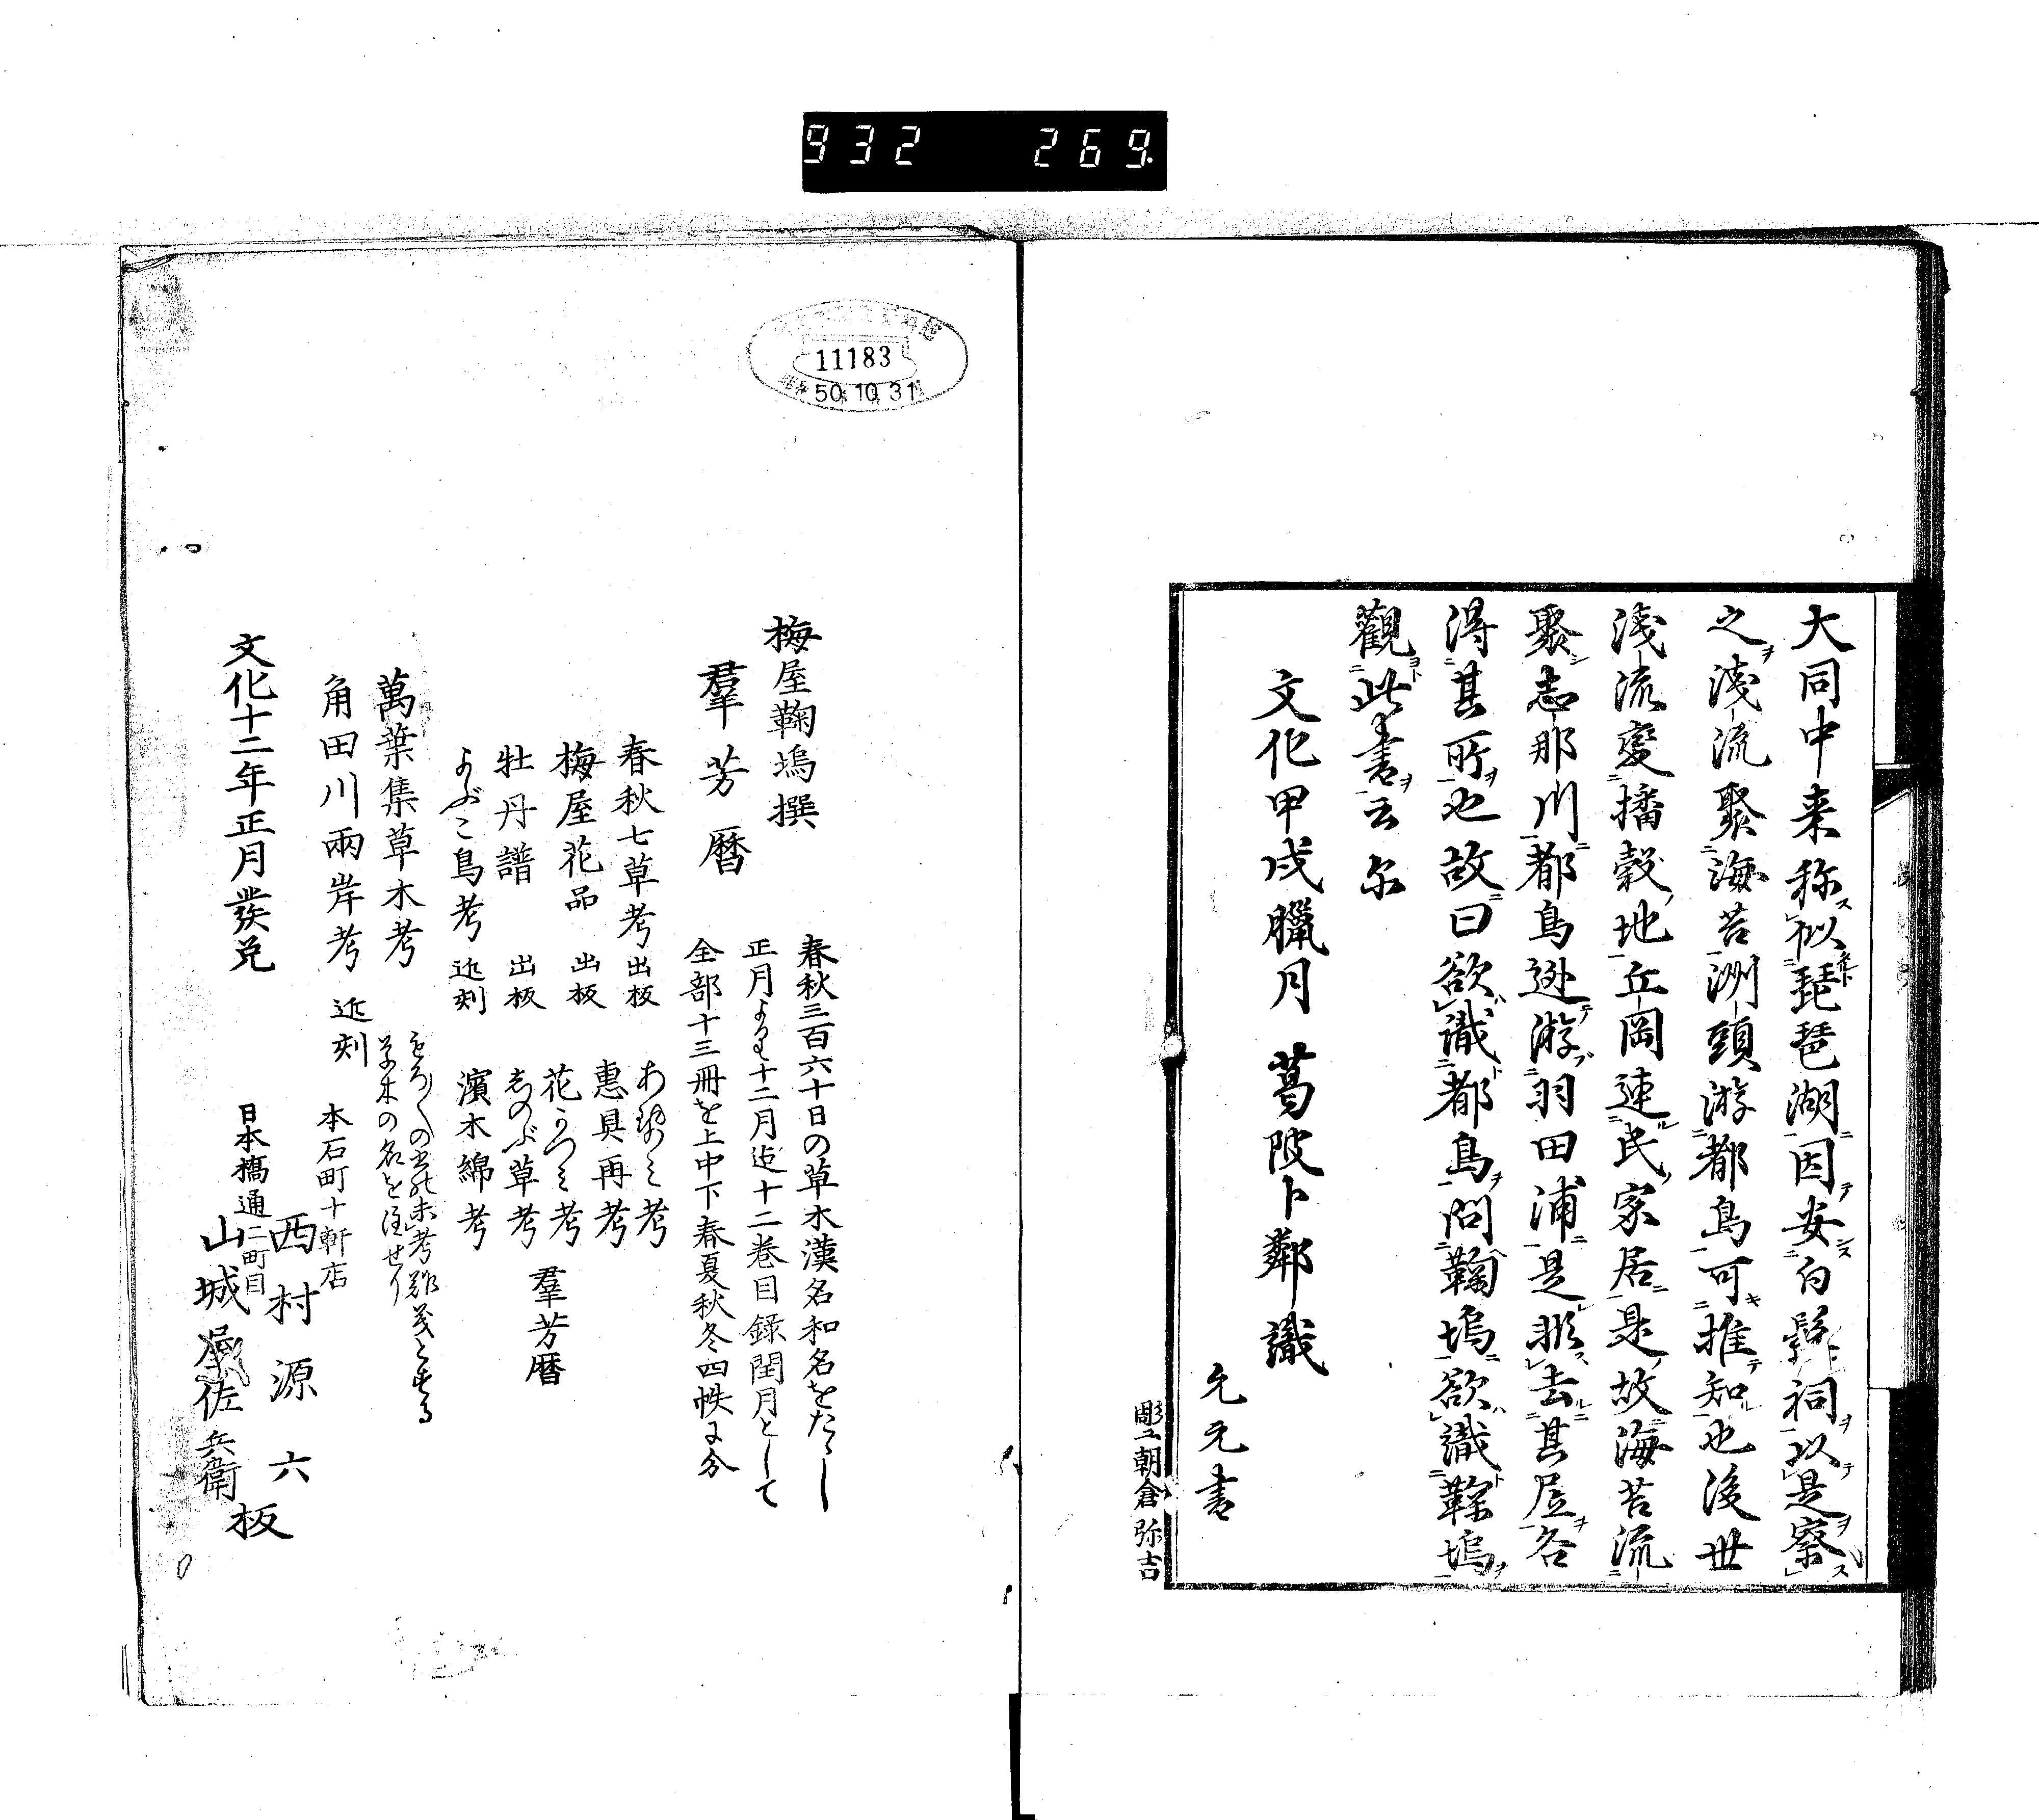 932 269
大同中来称似琵琶湖因安白髭祠以是察
之淺流聚海苔洲頭游都鳥可推知也後世
淺流変播穀地丘岡連民家居是故海苔流
聚志那川都鳥遊游羽田浦是非去其居各
得其所也故曰欲識都鳥問鞠塢欲識鞠塢
觀此書云尓
文化甲戌臘月 葛陂卜鄰識
允元書
彫工朝倉弥吉
11183
50.10.31
梅屋鞠塢撰
羣芳暦
春秋三百六十日の草木漢名和名をたゞし
正月より十二月迄十二巻目録閏月として
全部十三冊を上中下春夏秋冬四帙に分
春秋七草考 出板
梅屋花品 出板
牡丹譜 出板
よぶこ鳥考 近刻
惠具再考
花かつみ考
しのぶ草考
濱木綿考
羣芳暦
萬葉集草木考
草木の名を注せり
角田川兩岸考 近刻
文化十二年正月發兌
本石町十軒店
西村源六
日本橋通二町目
山城屋佐兵衛
板